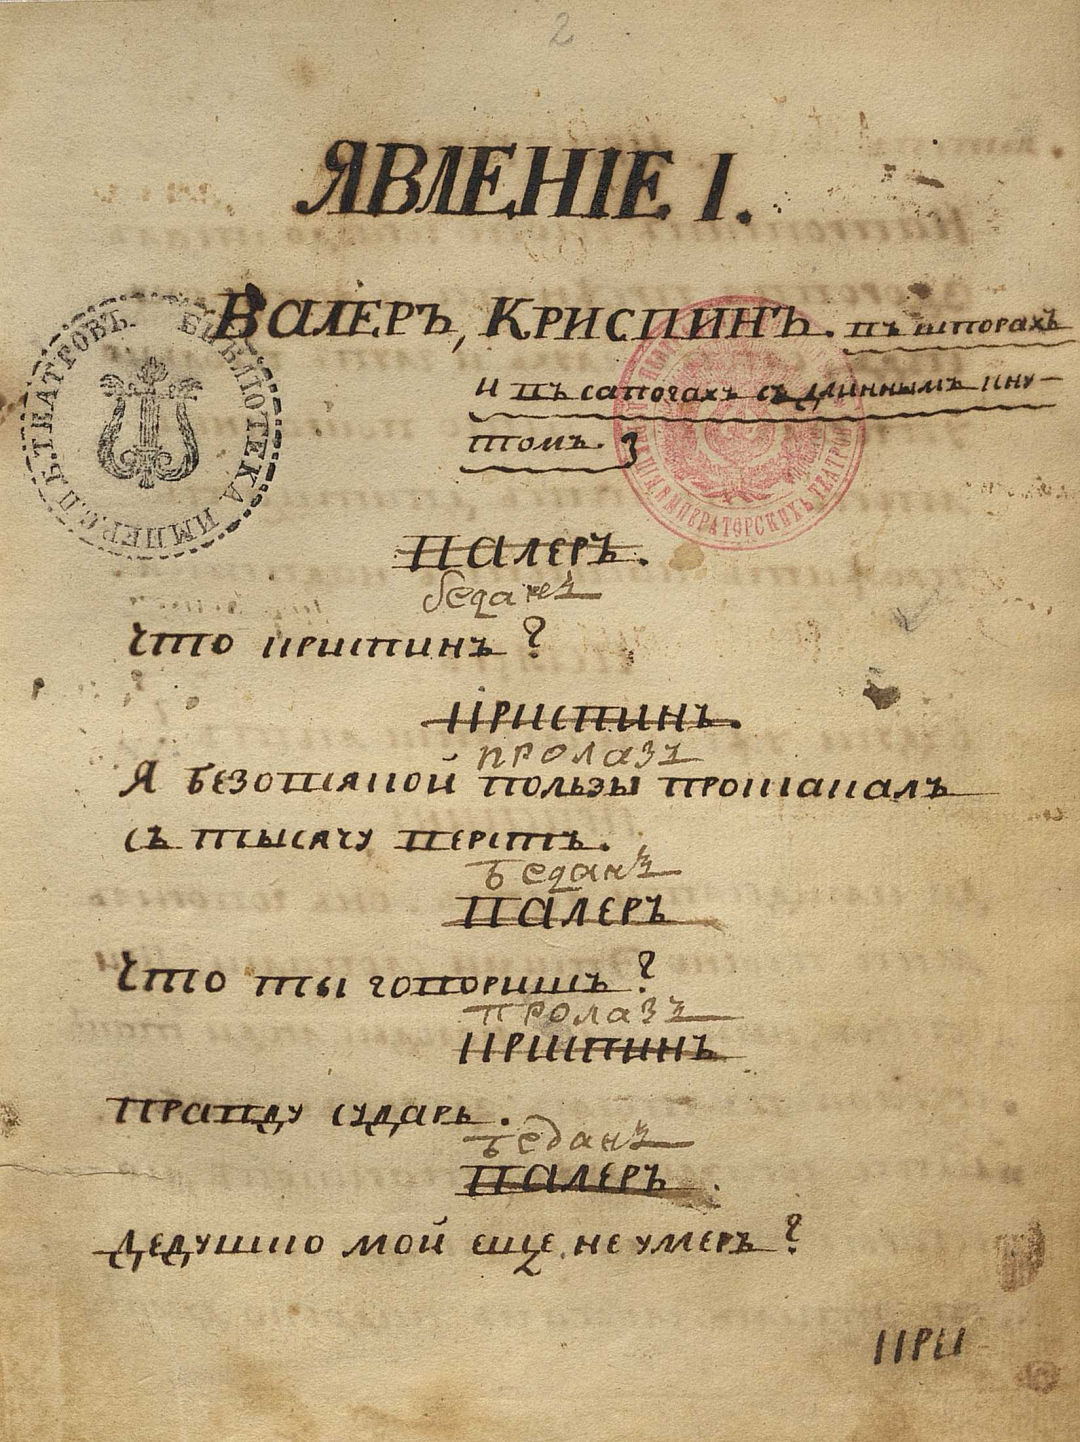 2
ЯВЛЕНІЕ I.
ВАЛЕРЪ, КРИСПИНЪ. въ шпорахъ
и въ сапогахъ съ длиннымъ кну-
томъ.
ВАЛЕРЪ.
беданъ
Что криспинъ?
КРИСПИНЪ.
пролазъ
Я безовсякой пользы проскакалъ
съ тысячу верстъ.
беданъ
ВАЛЕРЪ
Что ты говоришъ?
пролазъ
КРИСПИНЪ
Правду сударь.
беданъ
ВАЛЕРЪ.
Дедушко мой еще не умеръ?
КРИ
БИБЛІОТЕКА ИМПЕР. С.П.Б. ТЕАТРОВЪ
ИМПЕРАТОРСКИХЪ ТЕАТРОВ